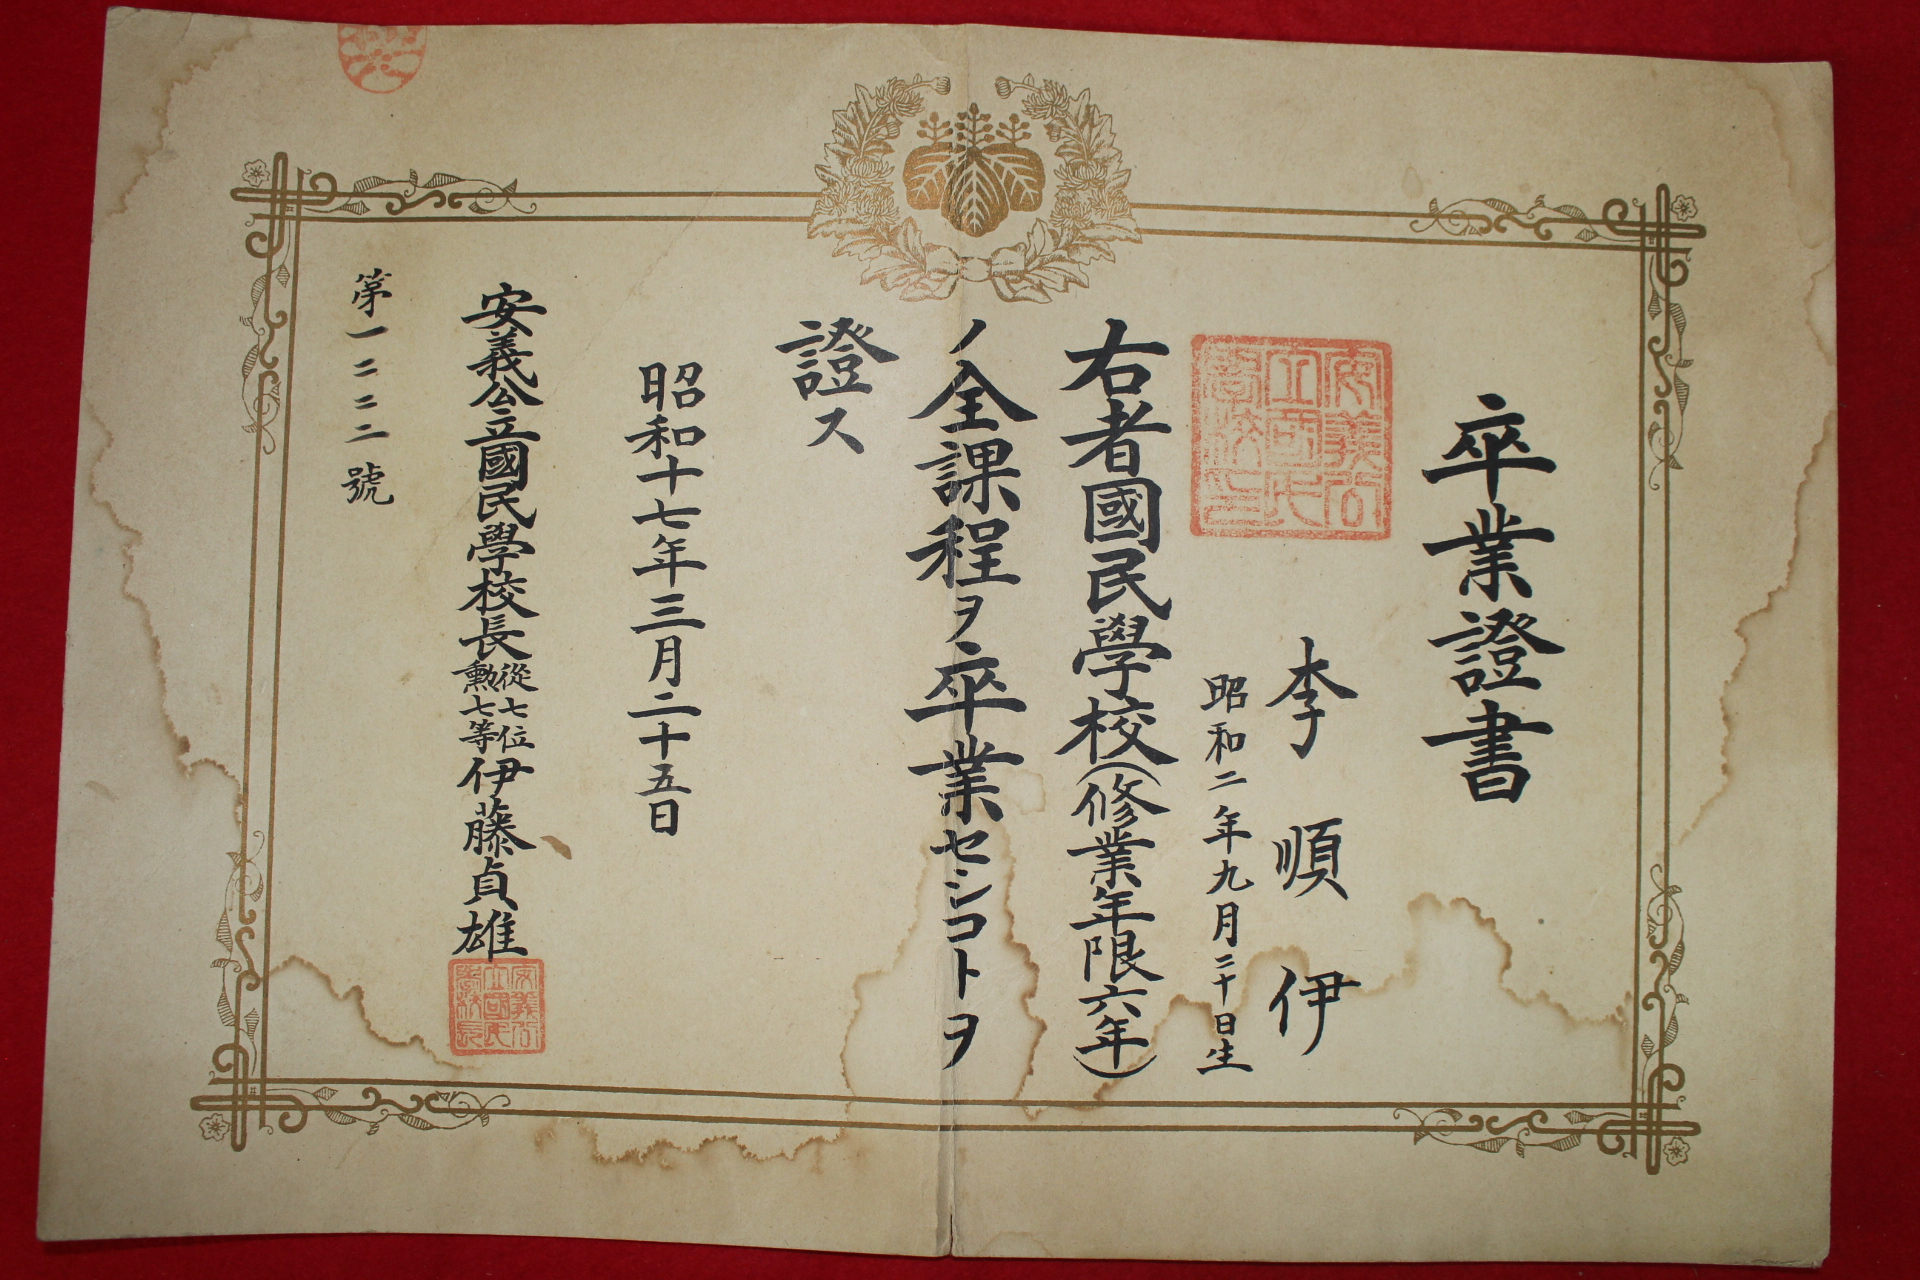 卒業證書
李順伊
昭和二年九月二十日生
安義公
立國民
學校印
右者國民學校(修業年限六年)
ノ全課程ヲ卒業セシコトヲ
證ス
昭和十七年三月二十五日
安義公立國民學校長從七位勲七等伊藤貞雄
安義公
立國民
學校長
第一二二二號